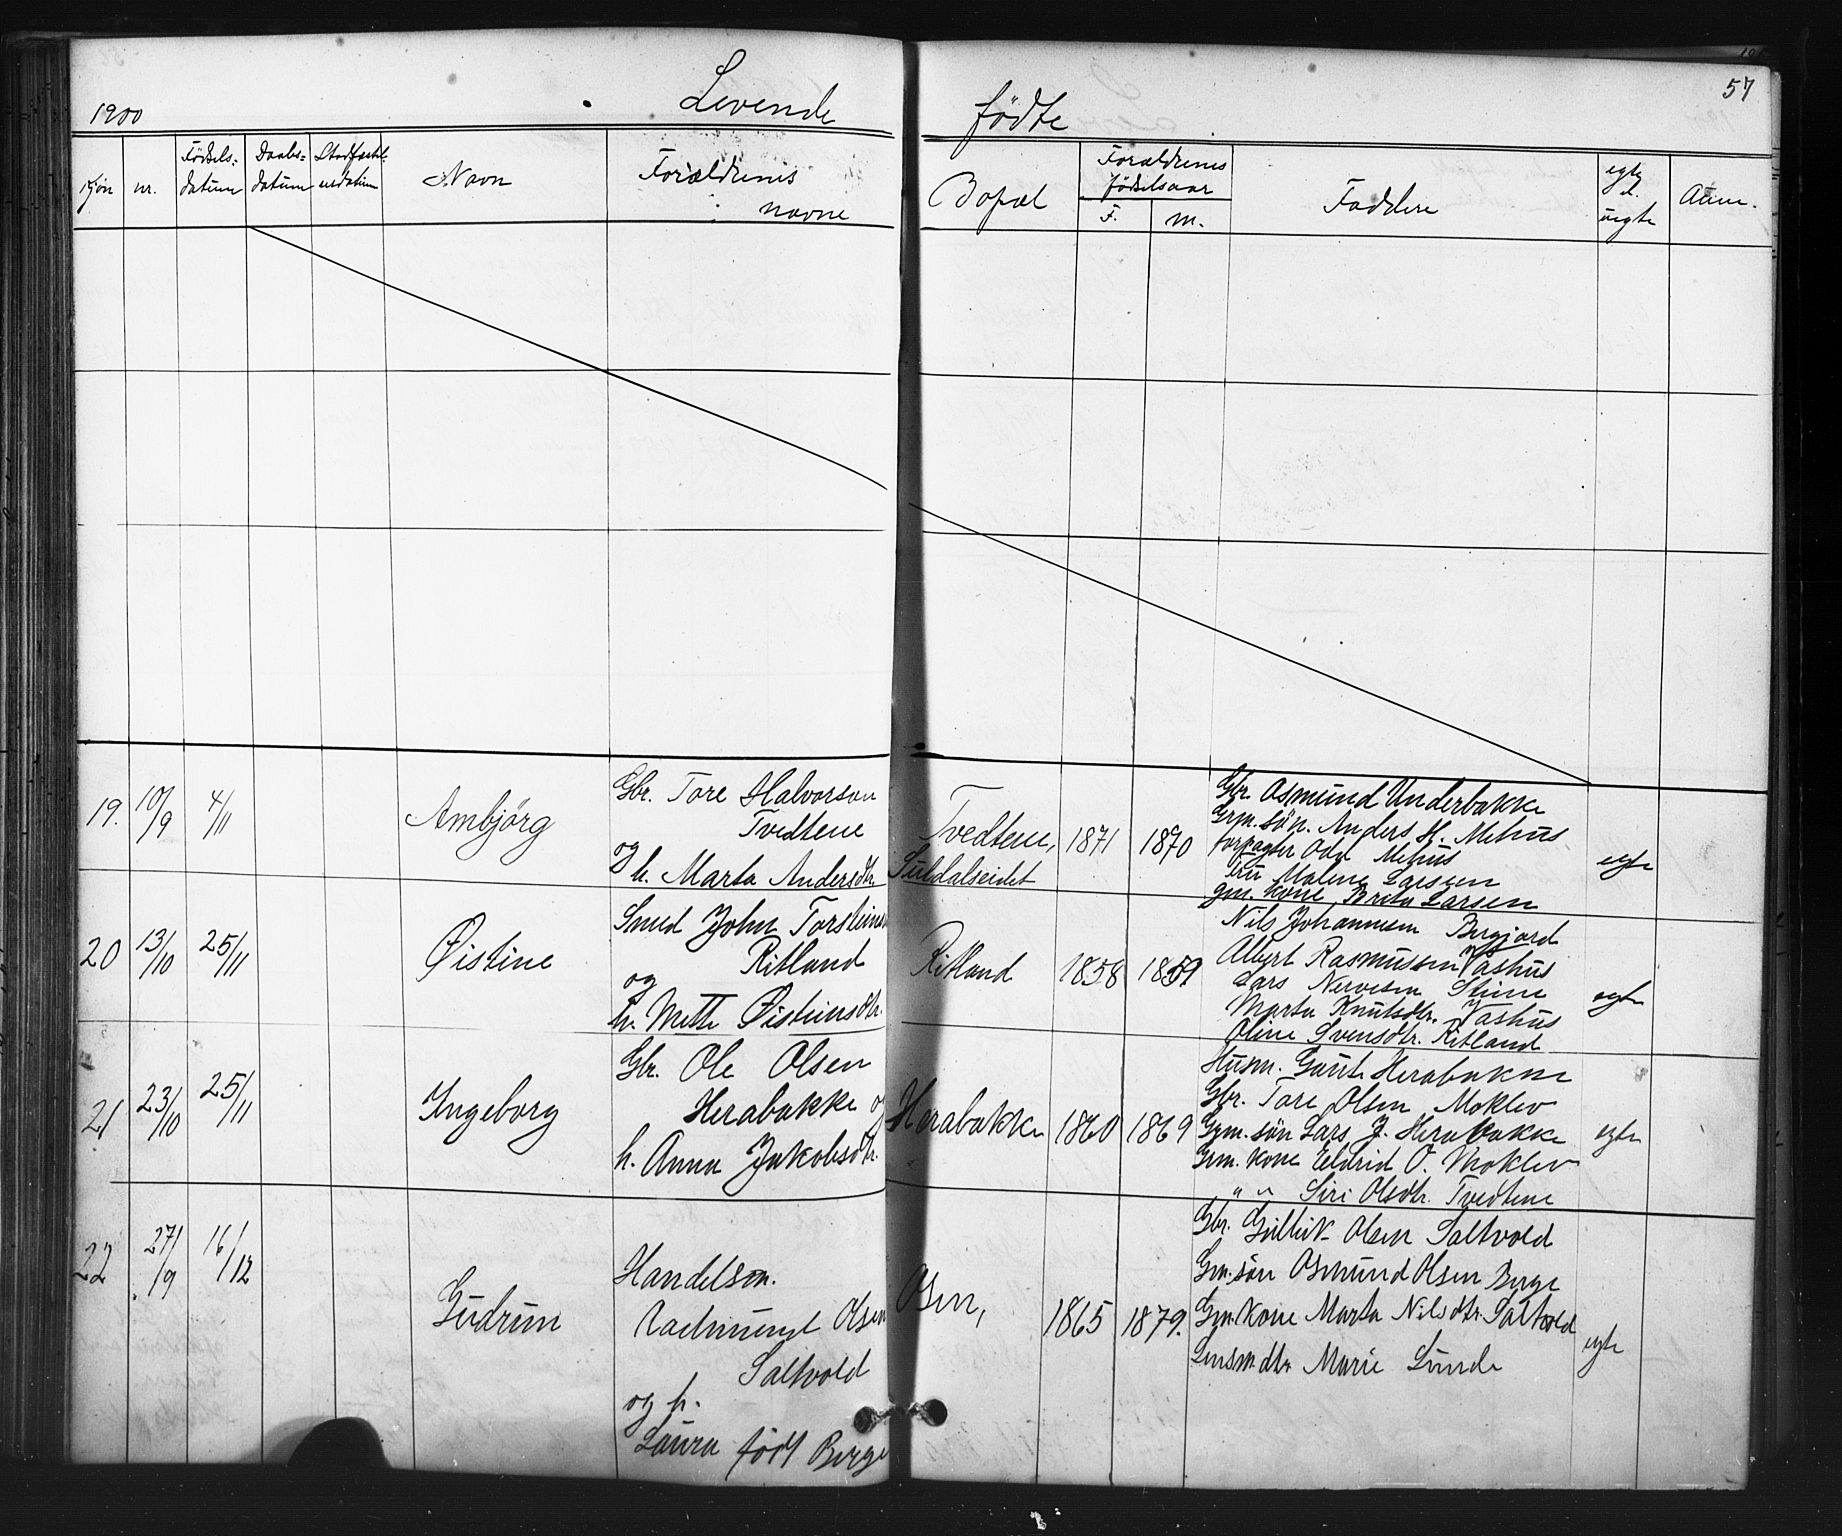 1900 Levende fødte 57
Kjøn nr. Fødsels-datum Daabs-datum Navn Forældrenes navne Bopæl Forældrenes fødselsaar F. M. Faddere egte el. uegte Anm.
19. 10/9 4/11 Ambjörg
Gbr. Tore Halvorson
Tvedtene
og
h. Marta Andersdtr.
Tvedtene,
Suldalseidet
1871 1870
Gbr. Asmund Underbakke
Grm. sön. Anders H. Mehus
forpagter Odd Mehus
Fru Malene Larsen
gm. kone Brita Larsen
egte
20 13/10 25/11 Øistine
Smed John Torsteinsen
Ritland
og
h. Mette Øisteinsdtr.
Ritland
1858 1859
Nils Johannesen Bergjord
Albert Rasmussen Vashus
Lars Stene
Marta Knutsdtr. Vashus
Oline Svensdtr. Ritland
egte
21 23/10 25/11 Ingeborg
Gbr. Ole Olsen
Herabakke og
h. Anna Jakobsdtr.
Herabakke
1860 1869
Husm. Gaut Herabakke
Gbr. Tore Olsen Moklev
Grm. søn Lars J. Herabakke
Grm. kone Eldrid O. Moklev
" " Siri Olsdtr. Tvedtene
egte
22 27/9 16/12 Gudrun
Handelsm.
Olsen
Saltvold
og h.
Laura født Berge
Osen,
1865 1879.
Gbr. Gullik Olsen Saltvold
Gm. søn Osmund Olsen Berge
Gm. kone Marta Nilsdtr. Saltvold
Lensm. dtr. Marie Lunde
egte